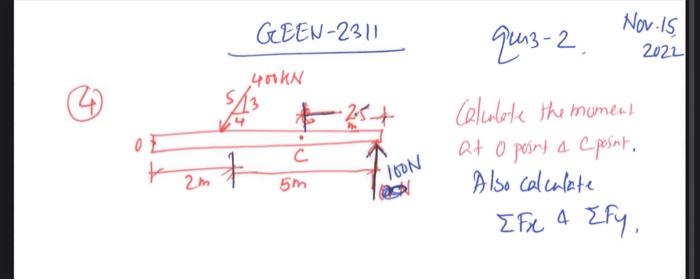 GEEN-2311
quiz-2.
Nov. 15, 2022
4
400KN
5
3
4
2.5 m
0
C
2m
5m
100N
Calculate the moment
at O point & C point.
Also calculate
ΣFx & ΣFy.